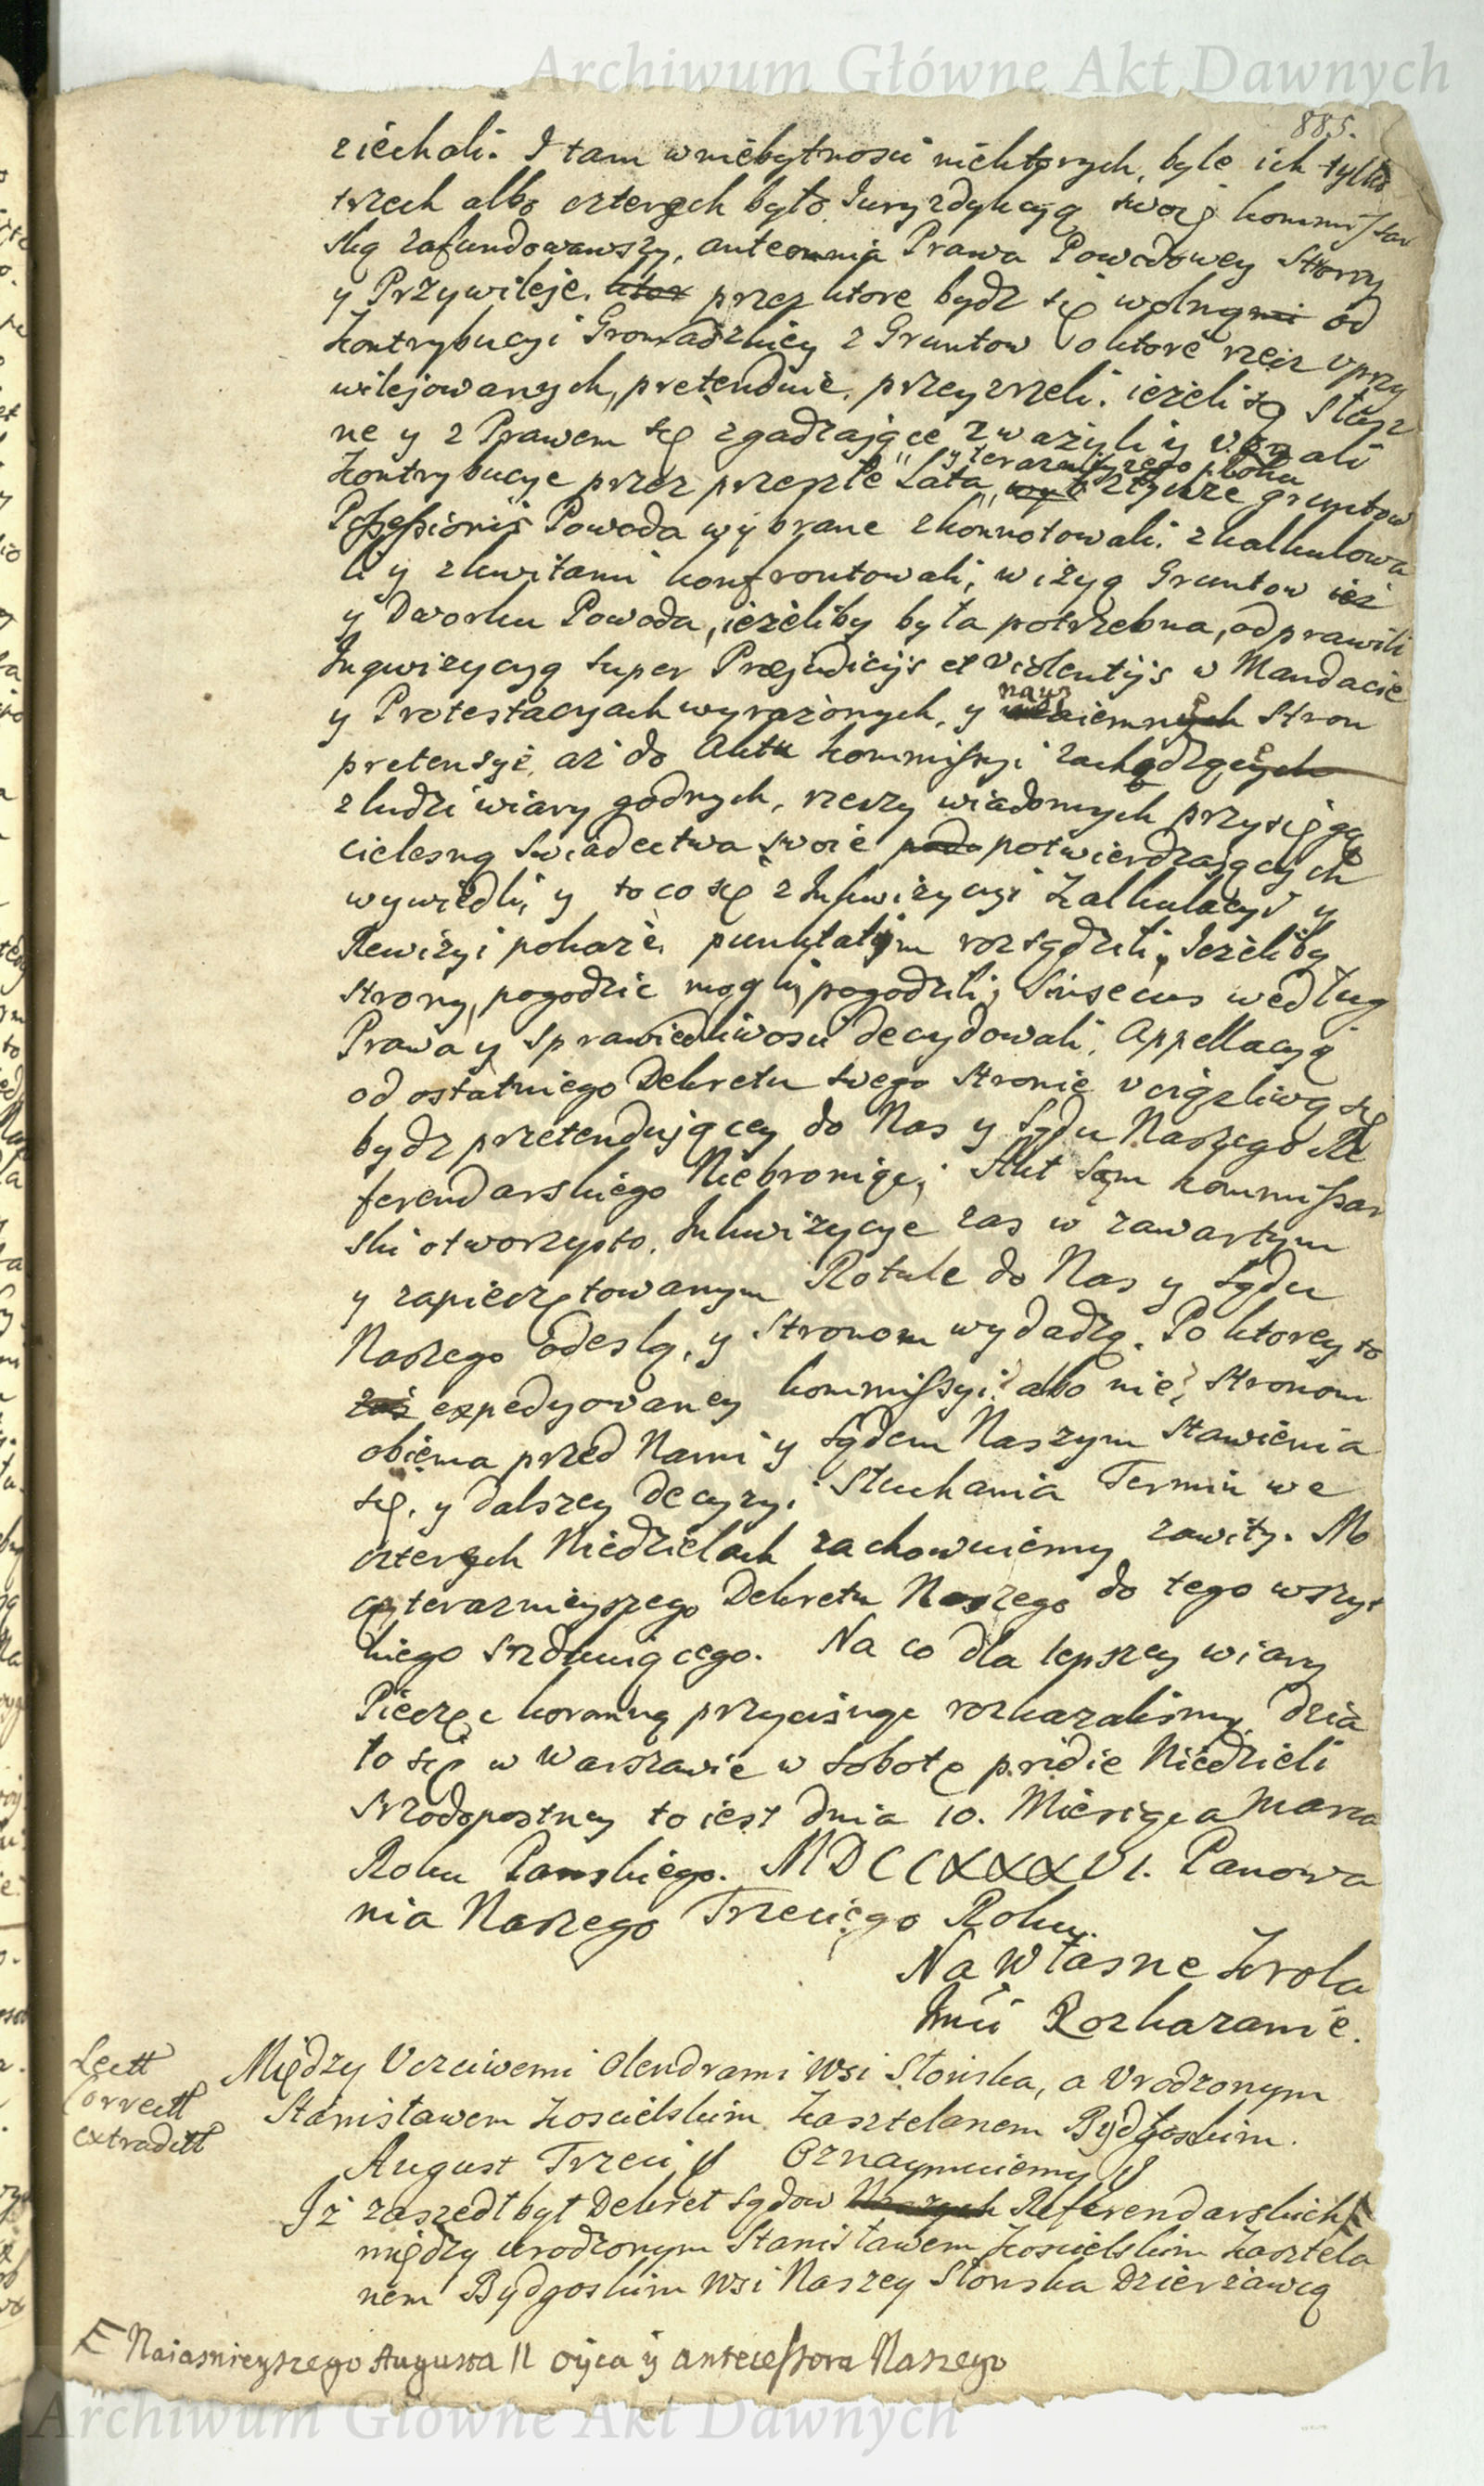 Archiwum Główne Akt Dawnych
885.
ziechali. I tam w niebytnosci niektorych, byle ich tylko
trzech albo czterech było Juryzdykcyą swoię kommissar
ską zafundowawszy, ante omnia Prawa Powodowey Strony
y Przywileje. ktor przez ktore bydz się wolnymi od
kontrybucyi Gromadzkiey z Gruntow o ktore rzecz uprzy
wilejowanych, pretenduie, przeyrzeli. ieżeli są słusz
ne y z Prawem się zgadzaiące zwazyli y uznali
y teraznieyszego roku
kontrybucye przez przeszłe Lata, z tychze gruntow
Possessionis Powoda wybrane zkonnotowali, zkalkulowa
li y zkwitami konfrontowali, wizyą Gruntow iez
y Dworku Powoda, ieżeliby była potrzebna, odprawili
Inqwizycyą super Præjudicijs et violentijs w Mandacie
y Protestacyach wyrażonych, y naya iemnych Stron
pretensye, aż do Aktu kommissyi zachodzących
z ludzi wiary godnych, rzeczy wiadomych przysięgą
cielesną swiadectwa swoie podo potwierdzaiących
wywiedli, y to co się z Inkwizycyi kalkulacyi y
Rewizyi pokaże, punktatim rozsądzili, Jeżeliby
strony, pogodzic mogli, pogodzili, sin secus według
Prawa y Sprawiedliwosci decydowali, Appellacyą
od ostatniego Dekretu swego stronie uciążliwą się
bydz pretenduiącey do Nas y Sądu Naszego Re
ferendarskiego Niebroniąc; Akt Sam kommissar
ski otworzysto, Inkwizycye zas w zawartym
y zapieczętowanym Rotule do Nas y Sądu
Naszego odeslą, y Stronom wydadzą. Po ktorey to
zas expedyowaney kommissyi albo nie, stronom
obiema przed Nami y Sądem Naszym Stawienia
się, y dalszey decyzyi Słuchania Termin we
czterech Niedzielach zachowuiemy zawity. Mo
cą teraznieyszego Dekretu Naszego do tego wszyt
kiego srzduiącego. Na co dla lepszey wiary
Pieczęc koronną przycisnąc rozkazalismy. Dzia
ło się w Warszawie w Sobotę pridie Niedzieli
Srzodopostney to iest dnia 10. Miesiąca Marca
Roku Panskiego. MDCCXXXVI. Panowa
nia Naszego Trzeciego Roku.
Na Własne Krola
Jmci Rozkazanie.
Lectt
Correctt
extraditt
Między Uczciwemi Olendrami Wsi Słonska, a Urodzonym
Stanisławem Koscielskim Kasztelanem Bydgoskim.
August Trzeci Oznaymuiemy
Iż zaszedł był Dekret Sądow Naszych Referendarskich
między urodzonym Stanisławem Koscielskim Kasztela
nem Bydgoskim Wsi Naszey Słonska Dzierżawcą
Naiasnieyszego Augusta II oyca y antecessora Naszego
Archiwum Główne Akt Dawnych